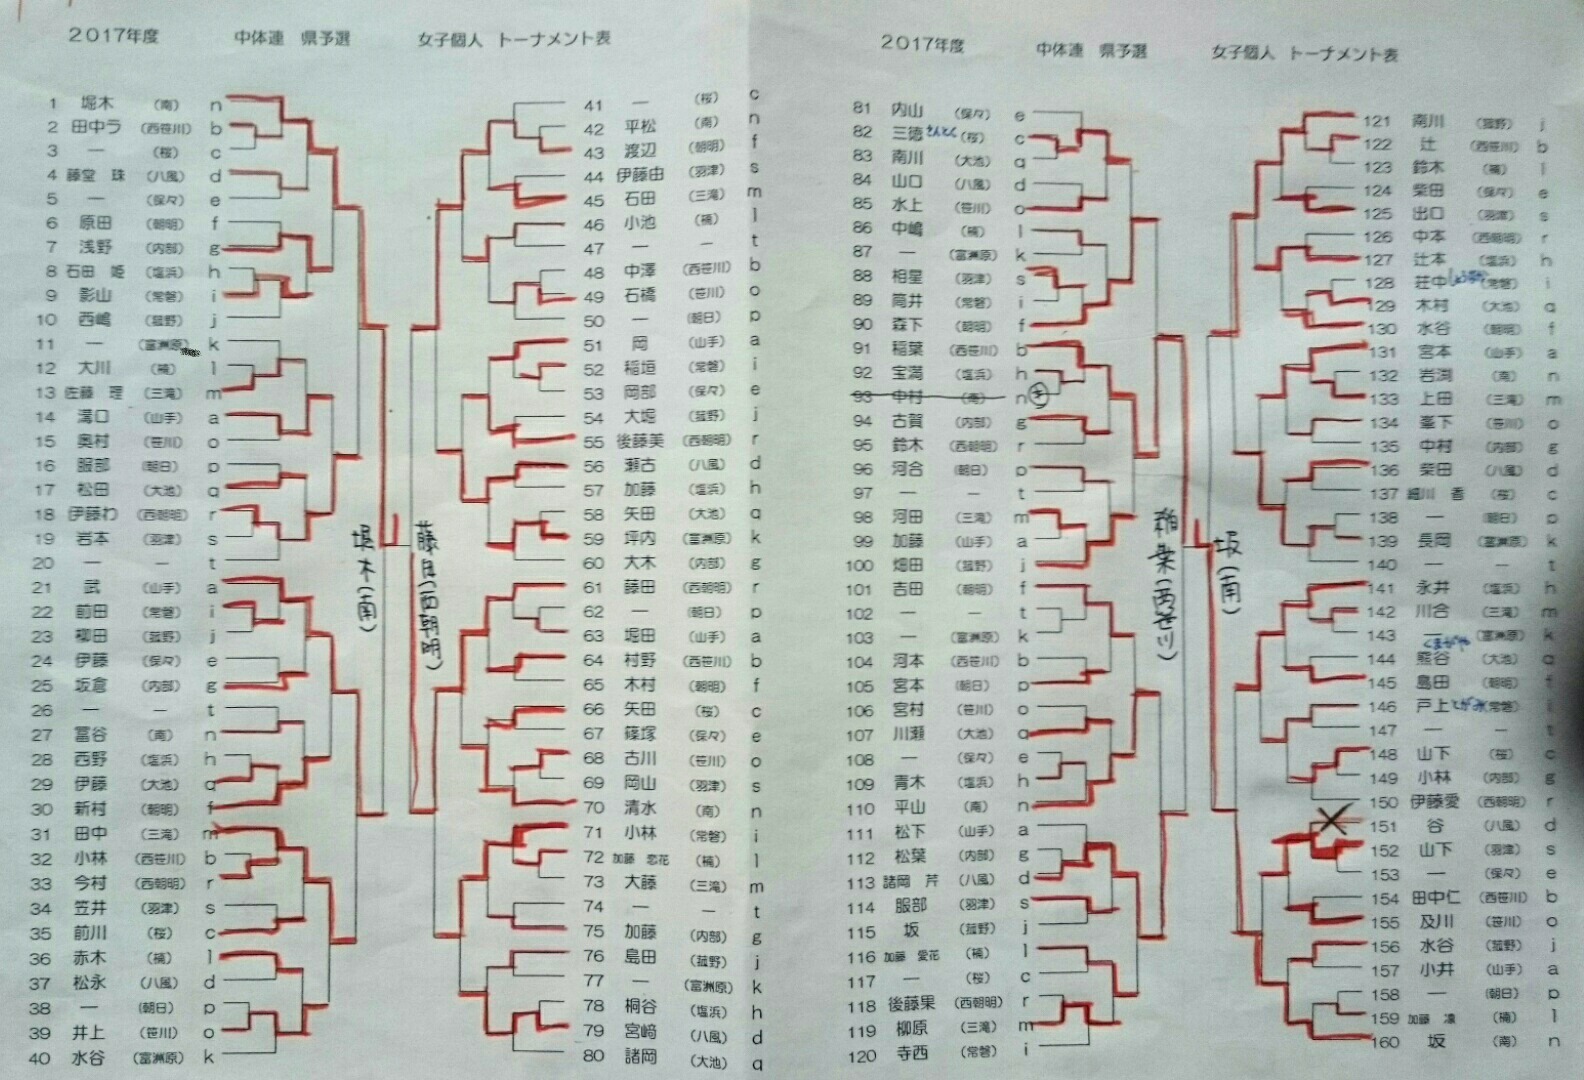 2017年度 中体連 県予選 女子個人 トーナメント表
1 堀木 (南) n
2 田中ラ (西笹川) b
3 — (桜) c
4 藤堂 珠 (八風) d
5 — (保々) e
6 原田 (朝明) f
7 浅野 (内部) g
8 石田 姫 (塩浜) h
9 影山 (常磐) i
10 西嶋 (菰野) j
11 — (富洲原) k
12 大川 (楠) l
13 佐藤 理 (三滝) m
14 溝口 (山手) a
15 奥村 (笹川) o
16 服部 (朝日) p
17 松田 (大池) q
18 伊藤わ (西朝明) r
19 岩本 (羽津) s
20 — — t
21 武 (山手) a
22 前田 (常磐) i
23 柳田 (菰野) j
24 伊藤 (保々) e
25 坂倉 (内部) g
26 — — t
27 冨谷 (南) n
28 西野 (塩浜) h
29 伊藤 (大池) q
30 新村 (朝明) f
31 田中 (三滝) m
32 小林 (西笹川) b
33 今村 (西朝明) r
34 笠井 (羽津) s
35 前川 (桜) c
36 赤木 (楠) l
37 松永 (八風) d
38 — (朝日) p
39 井上 (笹川) o
40 水谷 (富洲原) k
堀木(南)
藤田(西朝明)
41 — (桜) c
42 平松 (南) n
43 渡辺 (朝明) f
44 伊藤由 (羽津) s
45 石田 (三滝) m
46 小池 (楠) l
47 — — t
48 中澤 (西笹川) b
49 石橋 (笹川) o
50 — (朝日) p
51 岡 (山手) a
52 稲垣 (常磐) i
53 岡部 (保々) e
54 大堀 (菰野) j
55 後藤美 (西朝明) r
56 瀬古 (八風) d
57 加藤 (塩浜) h
58 矢田 (大池) q
59 坪内 (富洲原) k
60 大木 (内部) g
61 藤田 (西朝明) r
62 — (朝日) p
63 堀田 (山手) a
64 村野 (西笹川) b
65 木村 (朝明) f
66 矢田 (桜) c
67 篠塚 (保々) e
68 古川 (笹川) o
69 岡山 (羽津) s
70 清水 (南) n
71 小林 (常磐) i
72 加藤 恋花 (楠) l
73 大藤 (三滝) m
74 — — t
75 加藤 (内部) g
76 島田 (菰野) j
77 — (富洲原) k
78 桐谷 (塩浜) h
79 宮崎 (八風) d
80 諸岡 (大池) q
2017年度 中体連 県予選 女子個人 トーナメント表
81 内山 (保々) e
82 三徳 さんとく (桜) c
83 南川 (大池) q
84 山口 (八風) d
85 水上 (笹川) o
86 中嶋 (楠) l
87 — (富洲原) k
88 相星 (羽津) s
89 筒井 (常磐) i
90 森下 (朝明) f
91 稲葉 (西笹川) b
92 宝満 (塩浜) h
93 中村 (南) n
94 古賀 (内部) g
95 鈴木 (西朝明) r
96 河合 (朝日) p
97 — — t
98 河田 (三滝) m
99 加藤 (山手) a
100 畑田 (菰野) j
101 吉田 (朝明) f
102 — — t
103 — (富洲原) k
104 河本 (西笹川) b
105 宮本 (朝日) p
106 宮村 (笹川) o
107 川瀬 (大池) q
108 — (保々) e
109 青木 (塩浜) h
110 平山 (南) n
111 松下 (山手) a
112 松葉 (内部) g
113 諸岡 芹 (八風) d
114 服部 (羽津) s
115 坂 (菰野) j
116 加藤 愛花 (楠) l
117 — (桜) c
118 後藤果 (西朝明) r
119 柳原 (三滝) m
120 寺西 (常磐) i
稲葉(西笹川)
坂(南)
121 南川 (菰野) j
122 辻 (西笹川) b
123 鈴木 (楠) l
124 柴田 (保々) e
125 出口 (羽津) s
126 中本 (西朝明) r
127 辻本 (塩浜) h
128 荘中 (常磐) i
129 木村 (大池) q
130 水谷 (朝明) f
131 宮本 (山手) a
132 岩渕 (南) n
133 上田 (三滝) m
134 峯下 (笹川) o
135 中村 (内部) g
136 柴田 (八風) d
137 細川 香 (桜) c
138 — (朝日) p
139 長岡 (富洲原) k
140 — — t
141 永井 (塩浜) h
142 川合 (三滝) m
143 — (富洲原) k
くまがや
144 熊谷 (大池) q
145 島田 (朝明) f
146 戸上 とがみ (常磐) i
147 — — t
148 山下 (桜) c
149 小林 (内部) g
150 伊藤愛 (西朝明) r
151 谷 (八風) d
152 山下 (羽津) s
153 — (保々) e
154 田中仁 (西笹川) b
155 及川 (笹川) o
156 水谷 (菰野) j
157 小井 (山手) a
158 — (朝日) p
159 加藤 凛 (楠) l
160 坂 (南) n